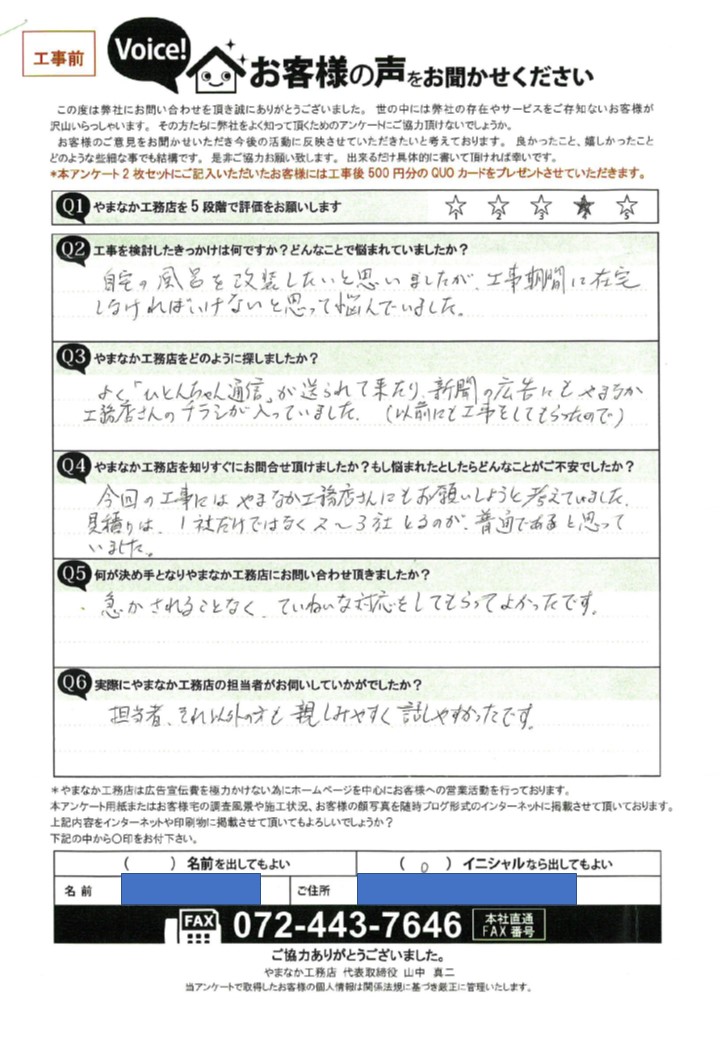 工事前
Voice!
お客様の声をお聞かせください
この度は弊社にお問い合わせを頂き誠にありがとうございました。 世の中には弊社の存在やサービスをご存知ないお客様が
沢山いらっしゃいます。 その方たちに弊社をよく知って頂くためのアンケートにご協力頂けないでしょうか。
お客様のご意見をお聞かせいただき今後の活動に反映させていただきたいと考えております。 良かったこと、嬉しかったこと
どのような些細な事でも結構です。 是非ご協力お願い致します。 出来るだけ具体的に書いて頂ければ幸いです。
*本アンケート2枚セットにご記入いただいたお客様には工事後500円分のQUOカードをプレゼントさせていただきます。
Q1 やまなか工務店を5段階で評価をお願いします ☆1 ☆2 ☆3 ★ ☆5
Q2 工事を検討したきっかけは何ですか?どんなことで悩まれていましたか?
自宅の風呂を改装したいと思いましたが、工事期間に在宅
しなければいけないと思って悩んでいました。
Q3 やまなか工務店をどのように探しましたか?
よく「ひとんちゃん通信」が送られて来たり、新聞の広告にもやまなか
工務店さんのチラシが入っていました。 (以前にも工事をしてもらったので)
Q4 やまなか工務店を知りすぐにお問合せ頂けましたか?もし悩まれたとしたらどんなことがご不安でしたか?
今回の工事にはやまなか工務店さんにもお願いしようと考えていました。
見積りは、1社だけではなく2~3社とるのが、普通であると思って
いました。
Q5 何が決め手となりやまなか工務店にお問い合わせ頂きましたか?
急かされることなく、ていねいな対応をしてもらってよかったです。
Q6 実際にやまなか工務店の担当者がお伺いしていかがでしたか?
担当者、それ以外の方も親しみやすく話しやすかったです。
*やまなか工務店は広告宣伝費を極力かけない為にホームページを中心にお客様への営業活動を行っております。
本アンケート用紙またはお客様宅の調査風景や施工状況、お客様の顔写真を随時ブログ形式のインターネットに掲載させて頂いております。
上記内容をインターネットや印刷物に掲載させて頂いてもよろしいでしょうか?
下記の中から〇印をお付下さい。
( ) 名前を出してもよい ( 〇 ) イニシャルなら出してもよい
名前 ご住所
FAX 072-443-7646 本社直通
FAX番号
ご協力ありがとうございました。
やまなか工務店 代表取締役 山中 真二
当アンケートで取得したお客様の個人情報は関係法規に基づき厳正に管理いたします。